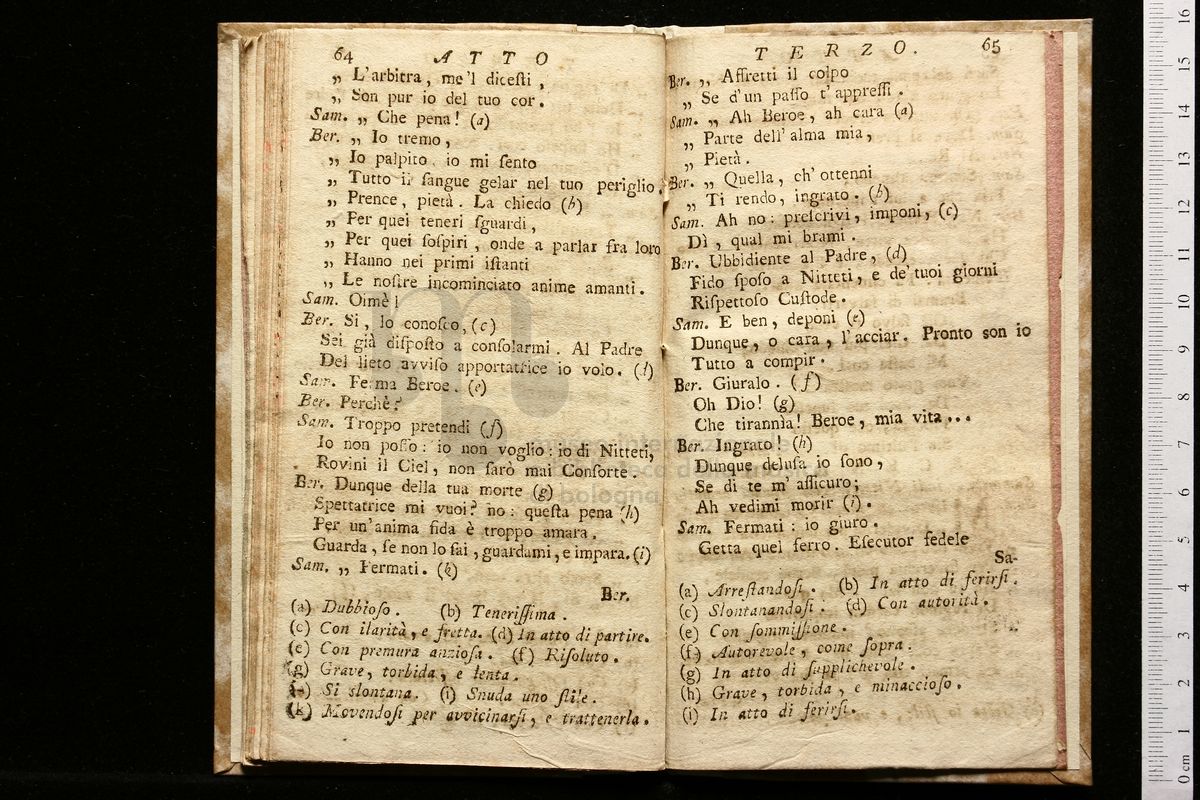 64 ATTO
„ L'arbitra, me'l dicesti,
„ Son pur io del tuo cor.
Sam. „ Che pena! (a)
Ber. „ Io tremo,
„ Io palpito, io mi sento
„ Tutto il sangue gelar nel tuo periglio.
„ Prence, pietà. La chiedo (b)
„ Per quei teneri sguardi,
„ Per quei sospiri, onde a parlar fra loro
„ Hanno nei primi istanti
„ Le nostre incominciato anime amanti.
Sam. Oimè!
Ber. Si, lo conosco, (c)
Sei già disposto a consolarmi. Al Padre
Del lieto avviso apportatrice io volo. (d)
Sam. Ferma Beroe. (e)
Ber. Perchè?
Sam. Troppo pretendi (f)
Io non posso: io non voglio: io di Nitteti,
Rovini il Ciel, non sarò mai Consorte.
Ber. Dunque della tua morte (g)
Spettatrice mi vuoi? no: questa pena (h)
Per un'anima fida è troppo amara.
Guarda, se non lo sai, guardami, e impara. (i)
Sam. „ Fermati. (k)
Ber.
(a) Dubbioso. (b) Tenerissima.
(c) Con ilarità, e fretta. (d) In atto di partire.
(e) Con premura anziosa. (f) Risoluto.
(g) Grave, torbida, e lenta.
(h) Si slontana. (i) Snuda uno stile.
(k) Movendosi per avvicinarsi, e trattenerla.
TERZO. 65
Ber. „ Affretti il colpo
„ Se d'un passo t'appressi.
Sam. „ Ah Beroe, ah cara (a)
„ Parte dell'alma mia,
„ Pietà.
Ber. „ Quella, ch'ottenni
„ Ti rendo, ingrato. (b)
Sam. Ah no: prescrivi, imponi, (c)
Dì, qual mi brami.
Ber. Ubbidiente al Padre, (d)
Fido sposo a Nitteti, e de'tuoi giorni
Rispettoso Custode.
Sam. E ben, deponi (e)
Dunque, o cara, l'acciar. Pronto son io
Tutto a compir.
Ber. Giuralo. (f)
Oh Dio! (g)
Che tirannìa! Beroe, mia vita...
Ber. Ingrato! (h)
Dunque delusa io sono,
Se di te m'assicuro;
Ah vedimi morir (i).
Sam. Fermati: io giuro.
Getta quel ferro. Esecutor fedele
Sa-
(a) Arrestandosi. (b) In atto di ferirsi.
(c) Slontanandosi. (d) Con autorità.
(e) Con sommissione.
(f) Autorevole, come sopra.
(g) In atto di supplichevole.
(h) Grave, torbida, e minaccioso.
(i) In atto di ferirsi.
0 cm 1 2 3 4 5 6 7 8 9 10 11 12 13 14 15 16